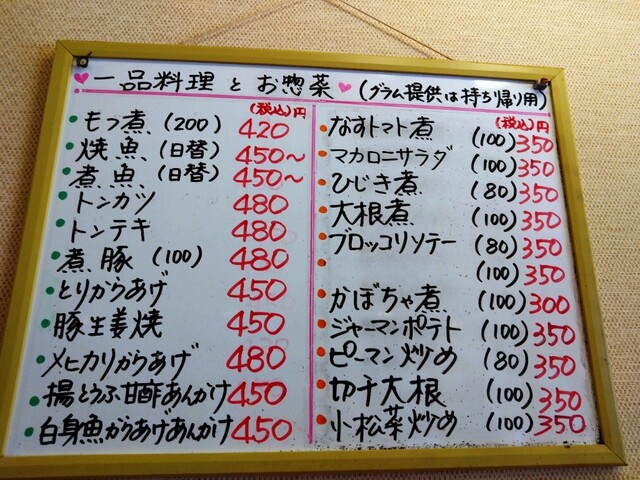 ♥一品料理とお惣菜♥(グラム提供は持ち帰り用)
(税込)円
・もつ煮(200) 420
・焼魚(日替) 450〜
・煮魚(日替) 450〜
・トンカツ 480
・トンテキ 480
・煮豚(100) 480
・とりからあげ 450
・豚生姜焼 450
・メヒカリからあげ 480
・揚とうふ甘酢あんかけ 450
・白身魚からあげあんかけ 450
(税込)円
・なすトマト煮(100) 350
・マカロニサラダ(100) 350
・ひじき煮(80) 350
・大根煮(100) 350
・ブロッコリソテー(80) 350
・(100) 350
・かぼちゃ煮(100) 300
・ジャーマンポテト(100) 350
・ピーマン炒め(80) 350
・切干大根(100) 350
・小松菜炒め(100) 350